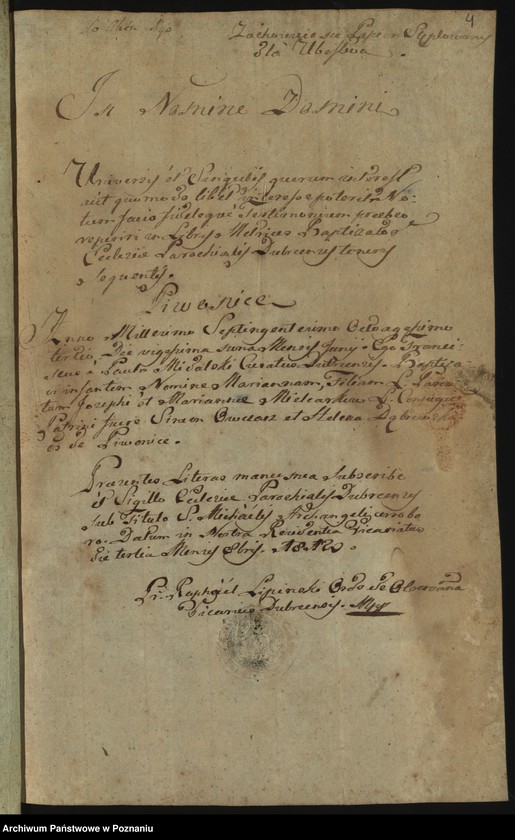 4
Zachowuie się Papier Stęplowany
dla Ubostwa
In Nomine Domini
Universis et Singulis quorum interest
aut quomodo libet interesse poterit No-
tum facio fidelgue Testimonium praebeo
reperiri in Libris Metrices Baptizator
Ecclesie Parochialis Dubrecensis tenores
sequentis.
Piwonice
Anno Millesimo Septingentesimo Octuagesimo
tertio, Die vigesima Mensis Junij. Ego Franci
scus a Paulo Curatus Dubrecensis. Baptisa
vi infantem Nomine Mariannam, Filiam L.
tum Josephi et Marianne L. Coniugum
Patrini fuere Simon et Helena
de Piwonice.
Praesentes Literas manu mea Subscribo
et Sigillo Ecclesie Parochialis Dubrecensis
Sub Titulo S. Michaelis Archangeli corrobo
ro. Datum in Nostra Residentia Vicariatus
Die tertia Mensis 8bris. 1812.
Fr. Raphaël Lipinski Ord
Vicarius Dubrecensis. Mpp
Archiwum Państwowe w Poznaniu